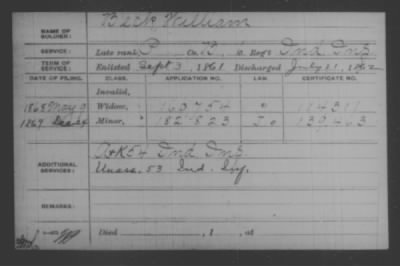 NAME OF SOLDIER: Beck William
SERVICE: Late rank, P Co. K, 10 Reg't Ind Inf
TERM OF SERVICE: Enlisted Sept 3, 1861 Discharged July 21, 1862
DATE OF FILING. CLASS. APPLICATION NO. LAW. CERTIFICATE NO.
Invalid,
1868 May 9 Widow, " 163754 "
1869 Minor, " 182823 139463
ADDITIONAL SERVICES: A & K 54 Ind Inf
Unass. 53 Ind. Inf.
REMARKS:
Died , 1 , at